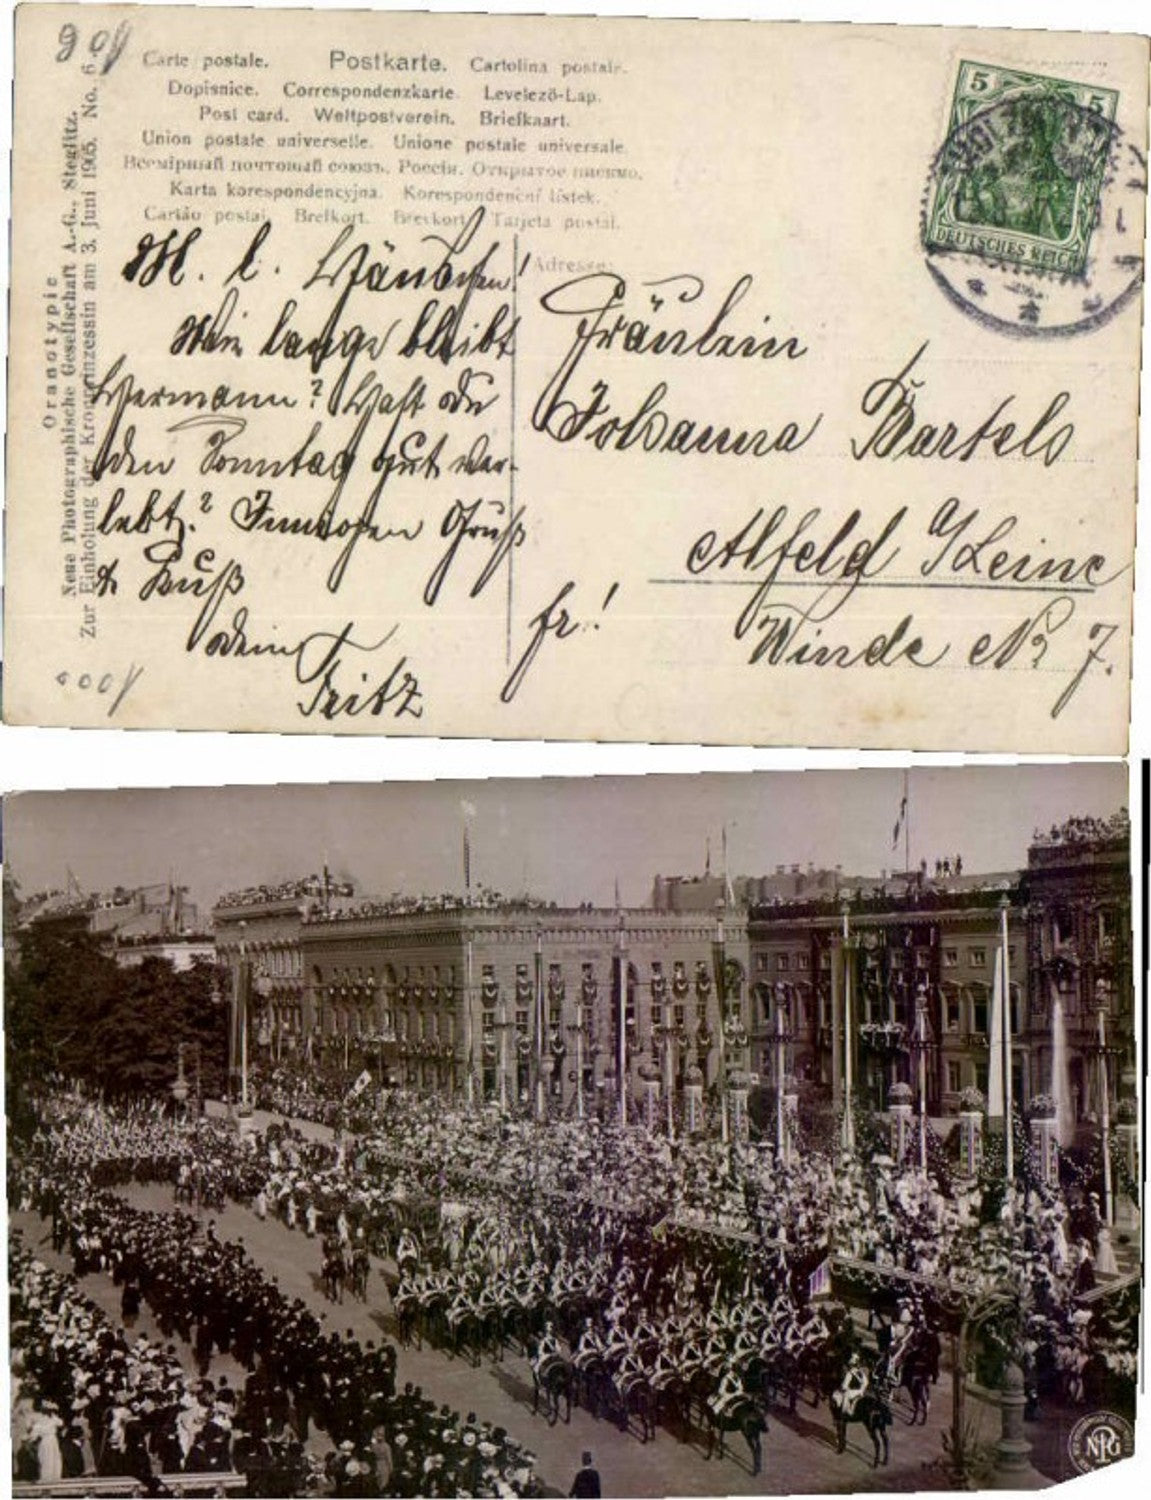 Carte postale. Postkarte. Cartolina postale.
Dopisnice. Correspondenzkarte. Levelező-Lap.
Post card. Weltpostverein. Briefkaart.
Union postale universelle. Unione postale universale.
Всемірный почтовый союзъ. Россія. Открытое письмо.
Karta korespondencyjna. Korespondenční listek.
Cartão postal. Brefkort. Brevkort. Tarjeta postal.
Oranotypie
Neue Photographische Gesellschaft A.-G., Steglitz.
Zur Einholung der Kronprinzessin am 3. Juni 1905. No. 6
5 5
DEUTSCHES REICH
M. l. Hänschen!
Wie lange bleibt
Hermann? Hast du
den Sonntag gut ver-
lebt? Innigen Gruß
& Kuß
Dein
Fritz
Adresse:
Fräulein
Johanna Bartels
Alfeld a/Leine
Winde No 7.
fr.!
NPG